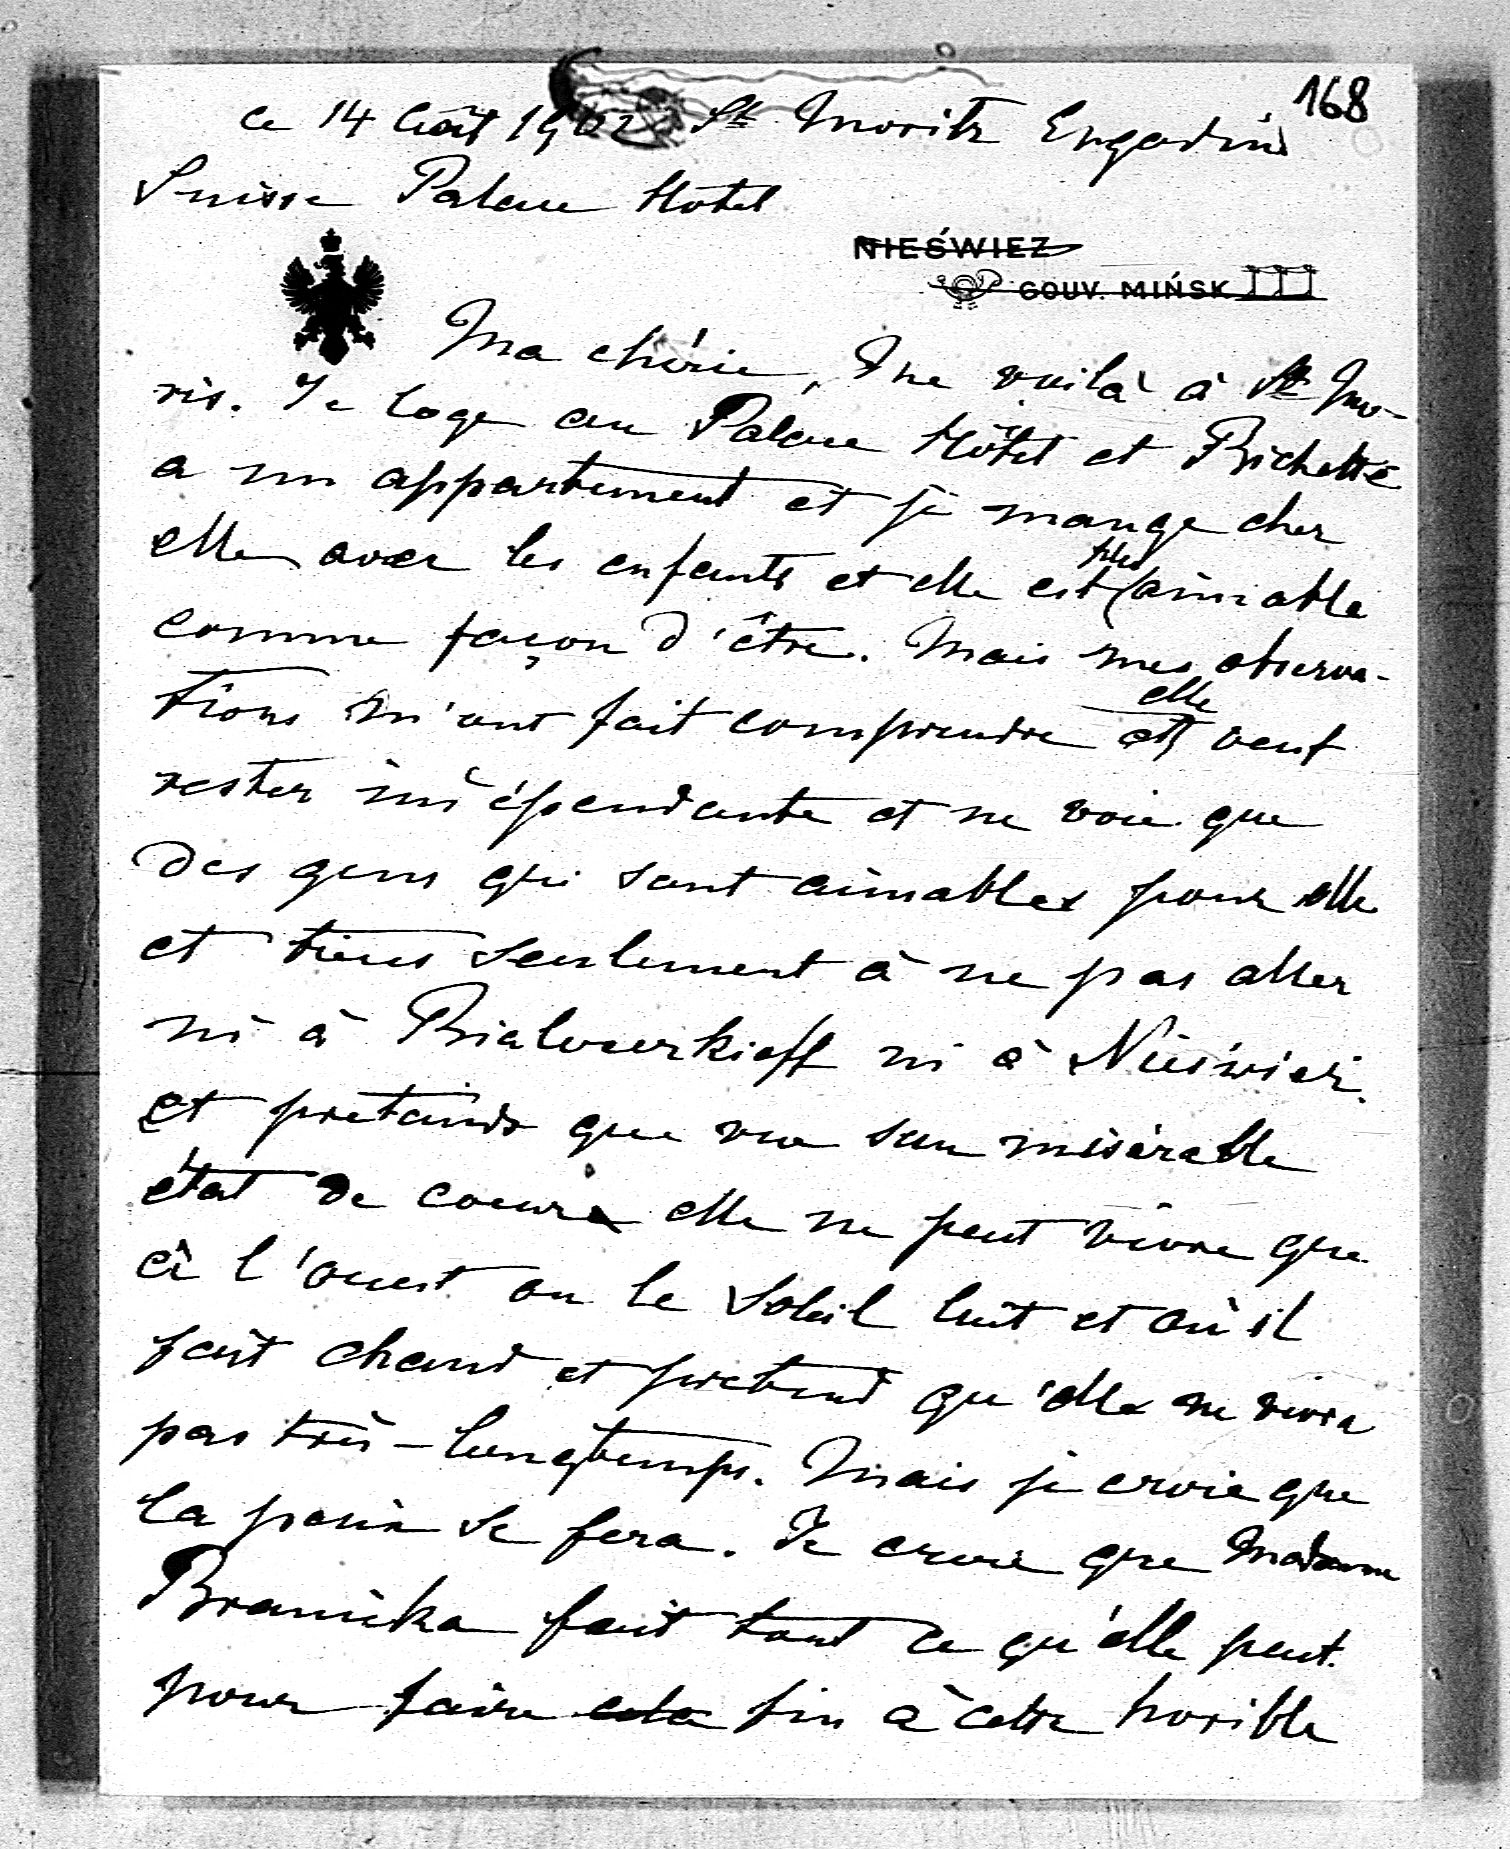 168
ce 14 Août 1902 St Moritz Engadin
Suisse Palace Hotel
NIEŚWIEZ
GOUV. MIŃSK
Ma chérie, Me voilà à St Mo-
ris. Je loge au Palace Hôtel et Bichette
a un appartement et je mange chez
elle avec les enfants et elle est plus aimable
comme façon d'être. Mais mes observa-
tions m'ont fait comprendre elle veut
rester indépendante et ne voie que
des gens qui sont aimables pour elle
et tiens seulement à ne pas aller
ni à Bialocerkieff ni à Nieśwież.
et pretends que vue son misérable
état de coeur elle ne peut vivre que
à l'ouest ou le soleil luit et où il
fait chaud et pretend qu'elle ne vivra
pas très-longtemps. Mais je croie que
la paix se fera. Je croie que Madame
Branicka fait tout ce qu'elle peut
pour faire cela fin à cette horible